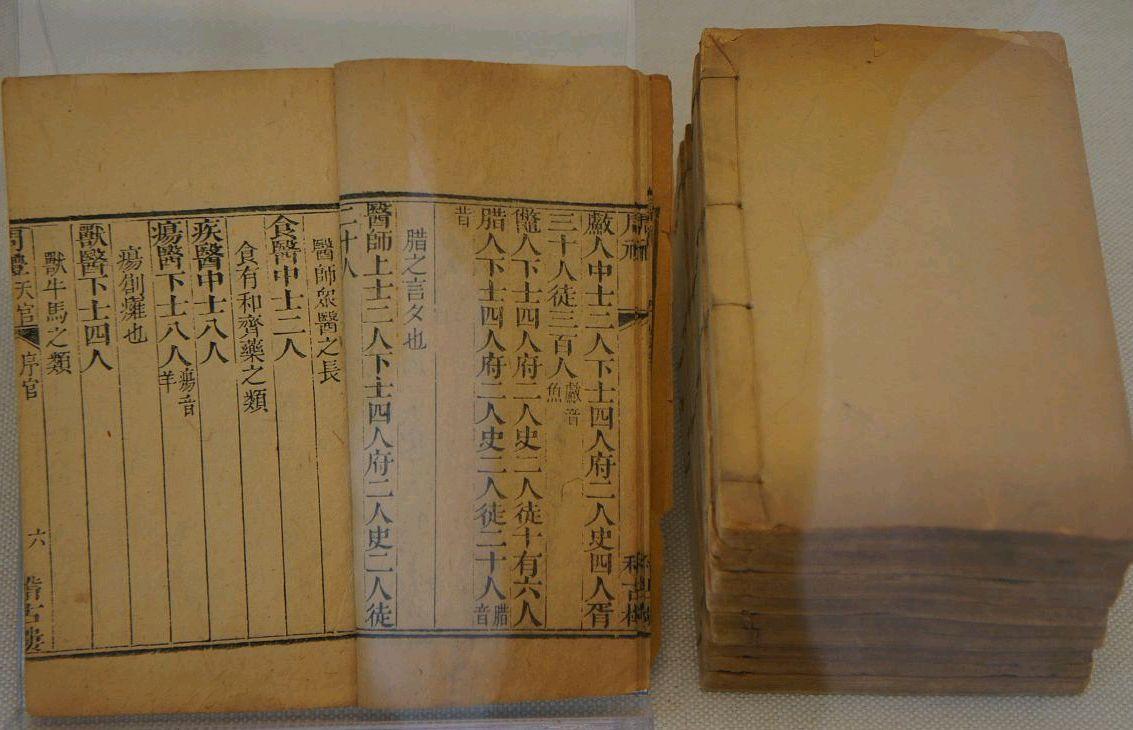 周禮
䱷人中士二人下士四人府二人史四人胥
三十人徒三百人䱷音魚
鼈人下士四人府二人史二人徒十有六人
腊人下士四人府二人史二人徒二十人腊音
昔
腊之言夕也
醫師上士二人下士四人府二人史二人徒
二十人
醫師眾醫之長
食醫中士二人
食有和齊藥之類
疾醫中士八人
瘍醫下士八人瘍音羊
瘍創癰也
獸醫下士四人
獸牛馬之類
周禮天官 序官 六 稽古樓